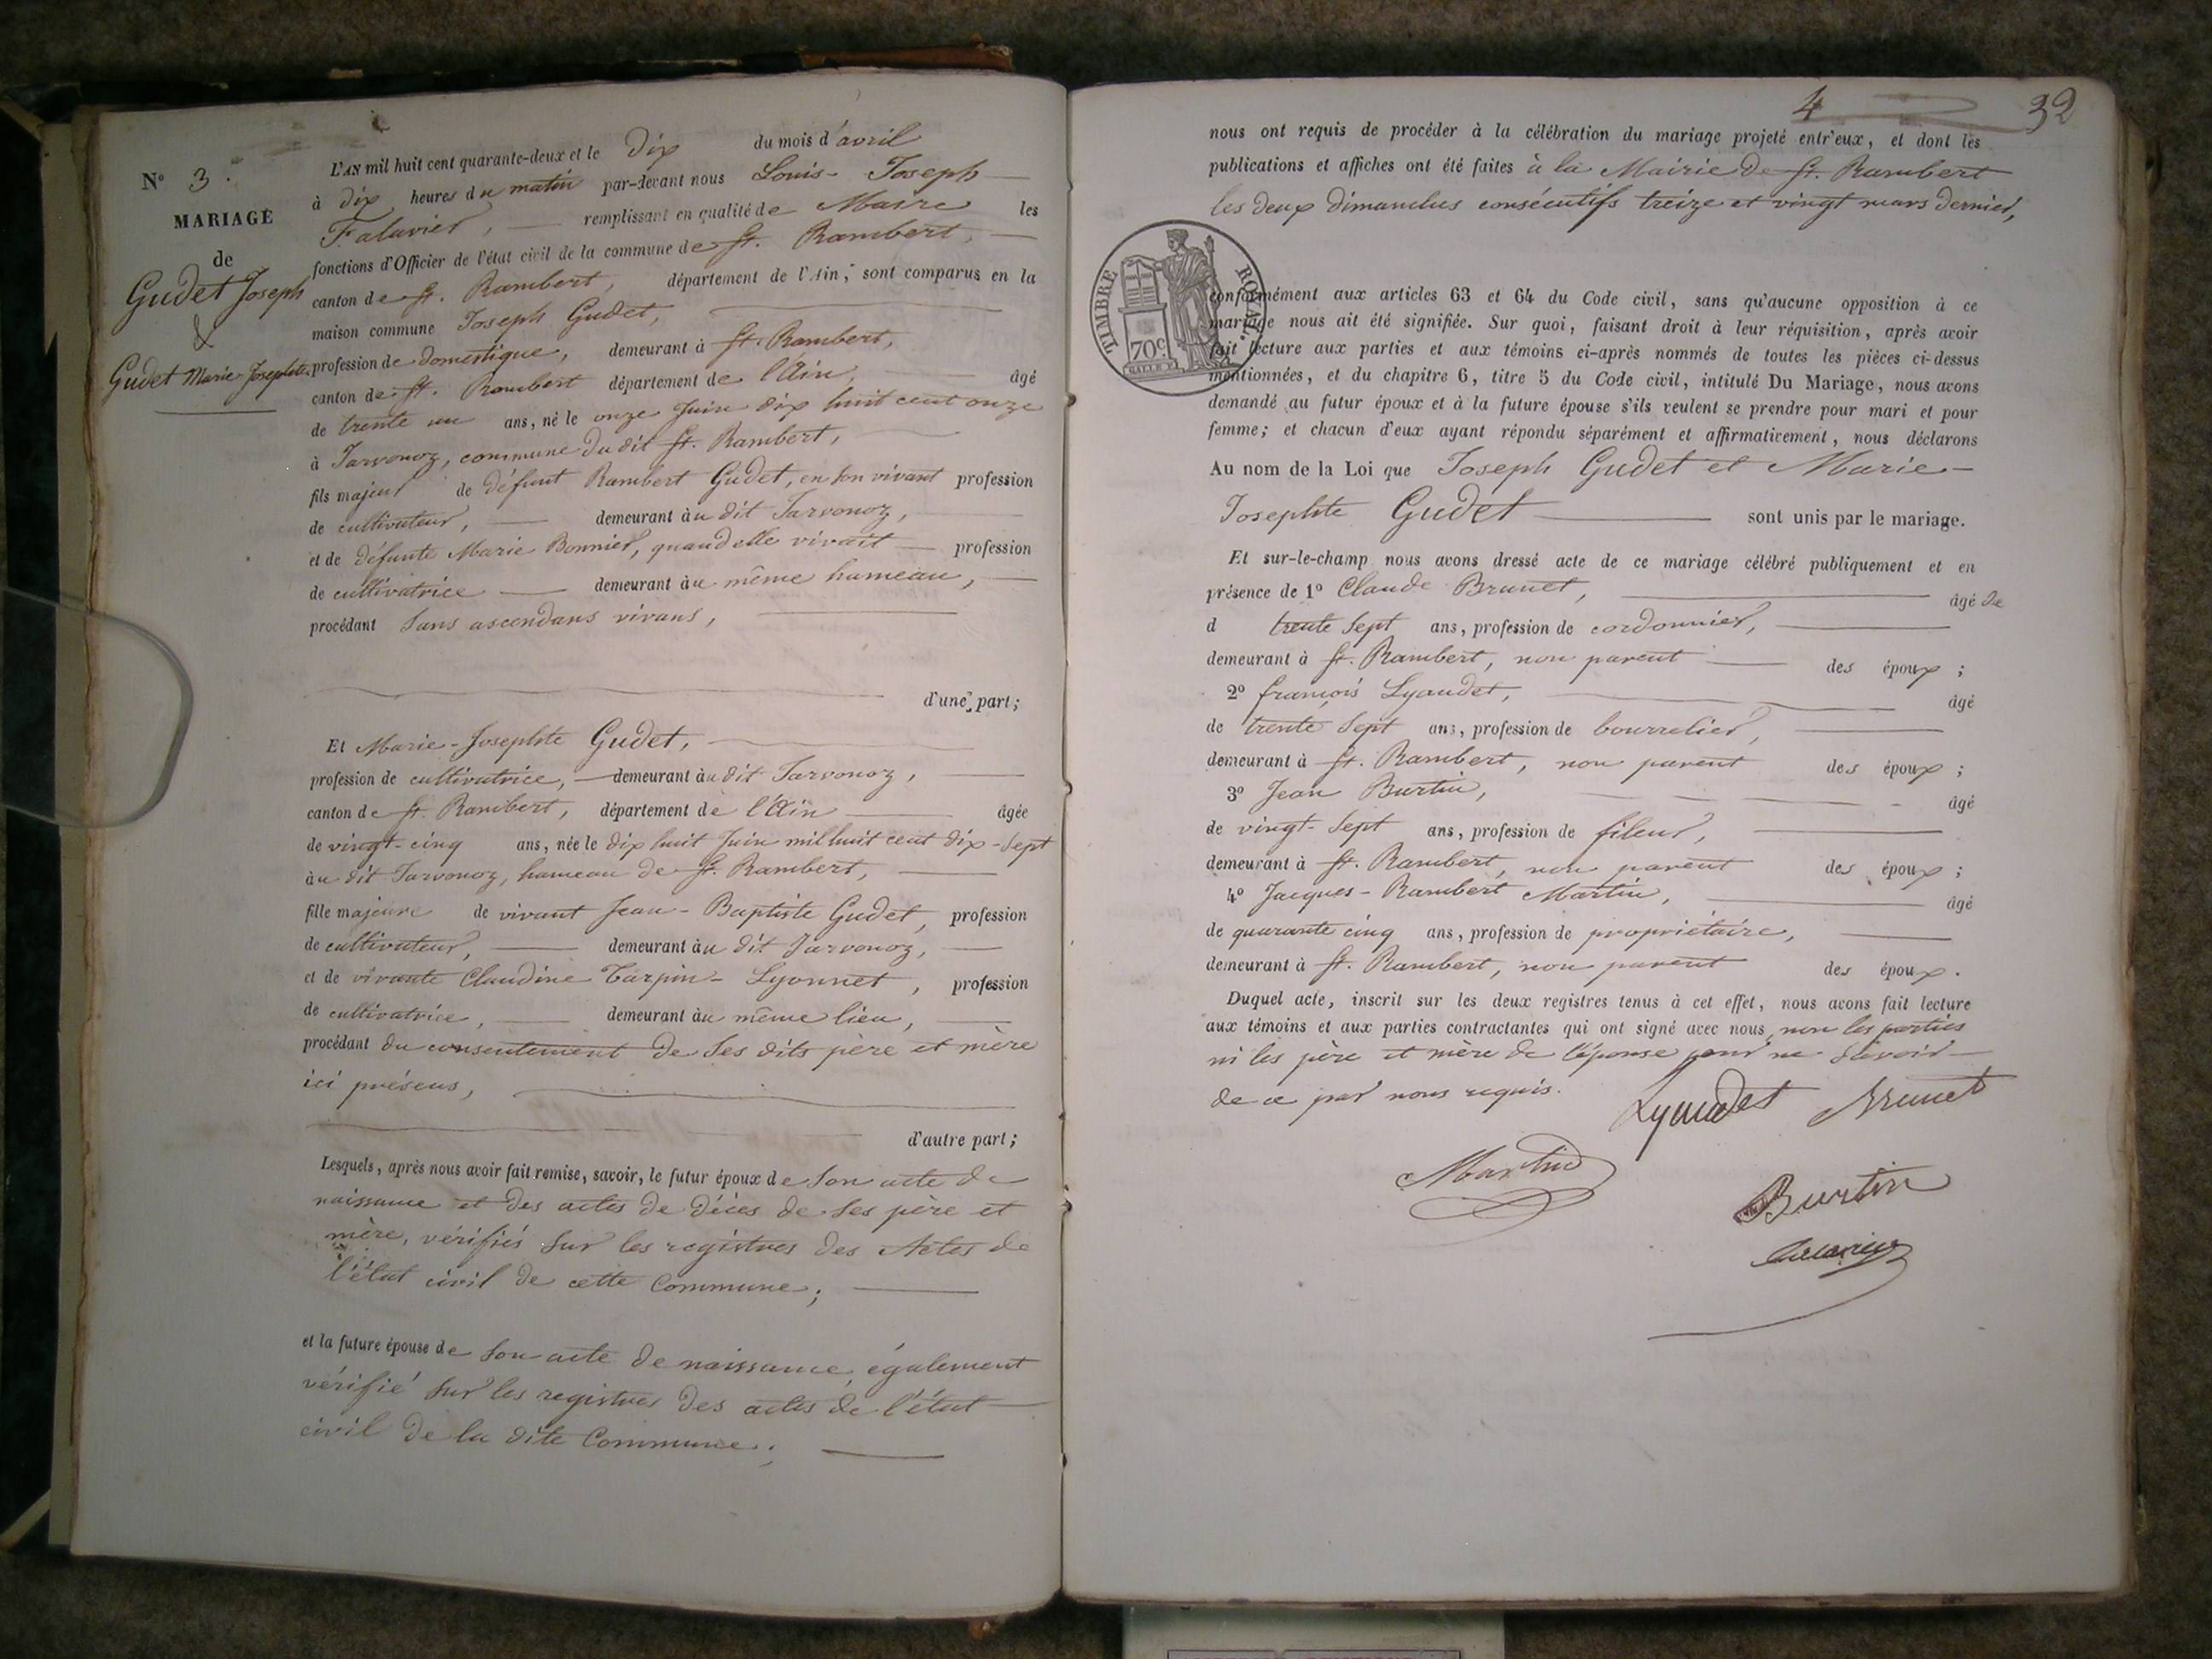 N° 3.
MARIAGE
de
Gudet Joseph
&
Gudet Marie-Josephte.
L'AN mil huit cent quarante-deux et le dix du mois d'avril
à dix heures du matin par-devant nous Louis-Joseph
Falavier, remplissant en qualité de Maire les
fonctions d'Officier de l'état civil de la commune de St. Rambert,
canton de St. Rambert, département de l'Ain, sont comparus en la
maison commune Joseph Gudet,
profession de domestique, demeurant à St. Rambert,
canton de St. Rambert département de l'Ain, âgé
de trente un ans, né le onze Juin dix huit cent onze
à Javornoz, commune du dit St. Rambert,
fils majeur de défunt Rambert Gudet, en son vivant profession
de cultivateur, demeurant au dit Javornoz,
et de défunte Marie Bonnier, quand elle vivait profession
de cultivatrice demeurant au même hameau,
procédant sans ascendans vivans,
d'une part;
Et Marie-Josephte Gudet,
profession de cultivatrice, demeurant au dit Javornoz,
canton de St. Rambert, département de l'Ain âgée
de vingt-cinq ans, née le dix huit Juin mil huit cent dix-sept
au dit Javornoz, hameau de St. Rambert,
fille majeure de vivant Jean-Baptiste Gudet, profession
de cultivateur, demeurant au dit Javornoz,
et de vivante Claudine Tarpin-Lyonnet, profession
de cultivatrice, demeurant au même lieu,
procédant du consentement de ses dits père et mère
ici présens,
d'autre part;
Lesquels, après nous avoir fait remise, savoir, le futur époux de son acte de
naissance et des actes de décès de ses père et
mère, vérifiés sur les registres des Actes de
l'état civil de cette Commune;
et la future épouse de son acte de naissance, également
vérifié sur les registres des actes de l'état
civil de la dite Commune;
4
32
nous ont requis de procéder à la célébration du mariage projeté entr'eux, et dont les
publications et affiches ont été faites à la Mairie de St. Rambert
les deux dimanches consécutifs treize et vingt mars dernier,
TIMBRE ROYAL
70c
conformément aux articles 63 et 64 du Code civil, sans qu'aucune opposition à ce
mariage nous ait été signifiée. Sur quoi, faisant droit à leur réquisition, après avoir
fait lecture aux parties et aux témoins ci-après nommés de toutes les pièces ci-dessus
mentionnées, et du chapitre 6, titre 5 du Code civil, intitulé Du Mariage, nous avons
demandé au futur époux et à la future épouse s'ils veulent se prendre pour mari et pour
femme; et chacun d'eux ayant répondu séparément et affirmativement, nous déclarons
Au nom de la Loi que Joseph Gudet et Marie-
Josephte Gudet sont unis par le mariage.
Et sur-le-champ nous avons dressé acte de ce mariage célébré publiquement et en
présence de 1° Claude Brunet, âgé de
d trente sept ans, profession de cordonnier,
demeurant à St. Rambert, non parent des époux;
2° françois Lyaudet, âgé
de trente sept ans, profession de bourrelier,
demeurant à St. Rambert, non parent des époux;
3° Jean Burtin, âgé
de vingt-sept ans, profession de fileur,
demeurant à St. Rambert, non parent des époux;
4° Jacques-Rambert Martin, âgé
de quarante cinq ans, profession de propriétaire,
demeurant à St. Rambert, non parent des époux.
Duquel acte, inscrit sur les deux registres tenus à cet effet, nous avons fait lecture
aux témoins et aux parties contractantes qui ont signé avec nous, non les parties
ni les père et mère de l'épouse pour ne savoir
de ce par nous requis.
Lyaudet Brunet
Martin
Burtin